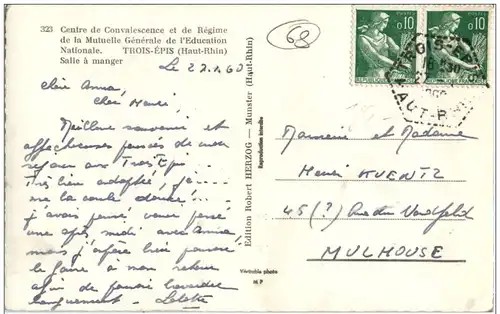 323 Centre de Convalescence et de Régime
de la Mutuelle Générale de l'Education
Nationale. TROIS-ÉPIS (Haut-Rhin)
Salle à manger
Le 27.1.60
Chère Anna,
Cher Henri,
Meilleur souvenir et
affectueuses pensées de mon
séjour aux Trois Epis
Très bien adaptée, je
me la coule douce!
J'avais pensé venir passer
une après midi avec
mais j'espère bien pouvoir
le faire à mon retour
afin de pouvoir bavarder
longuement. Letette
Edition Robert HERZOG — Munster (Haut-Rhin)
Reproduction interdite
Véritable photo
M P
68
0,10
0,10
TROIS-EP
HAUT-RHIN
Monsieur et Madame
Henri KUENTZ
45 (?) Rue du Nordfeld
MULHOUSE